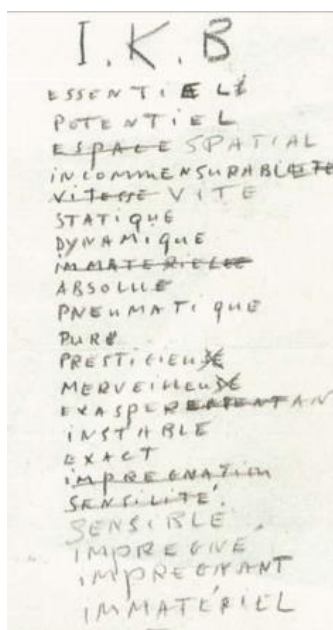 I.K.B
ESSENTIELÉ
POTENTIEL
ESPACE SPATIAL
INCOMMENSURABLETE
VITESSE VITE
STATIQUE
DYNAMIQUE
IMMATERIELLE
ABSOLUE
PNEUMATIQUE
PURE
PRESTIGIEUSE
MERVEILLEUSE
EXASPEREMENTANT
INSTABLE
EXACT
IMPREGNATION
SENSILITÉ
SENSIBLE
IMPREGNÉ
IMPREGNANT
IMMATÉRIEL